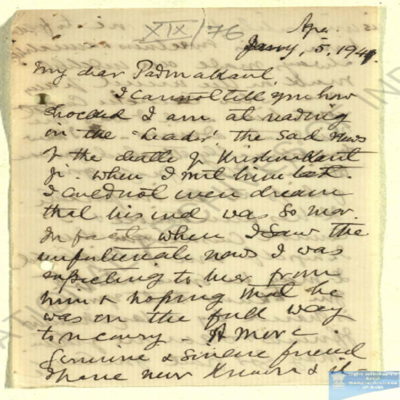 XIX/76
Apr.
Jany, 5, 194
My dear Padmakant,
I cannot tell you how
shocked I am at reading
in the 'Leader' the sad news
of the death of Krishnakant
ji. When I met him last
I could not even dream
that his end was so near.
In fact, when I saw the
unfortunate news I was
expecting to hear from
him & hoping that he
was on the full way
to recovery. A more
genuine & sincere friend
I have never known & it